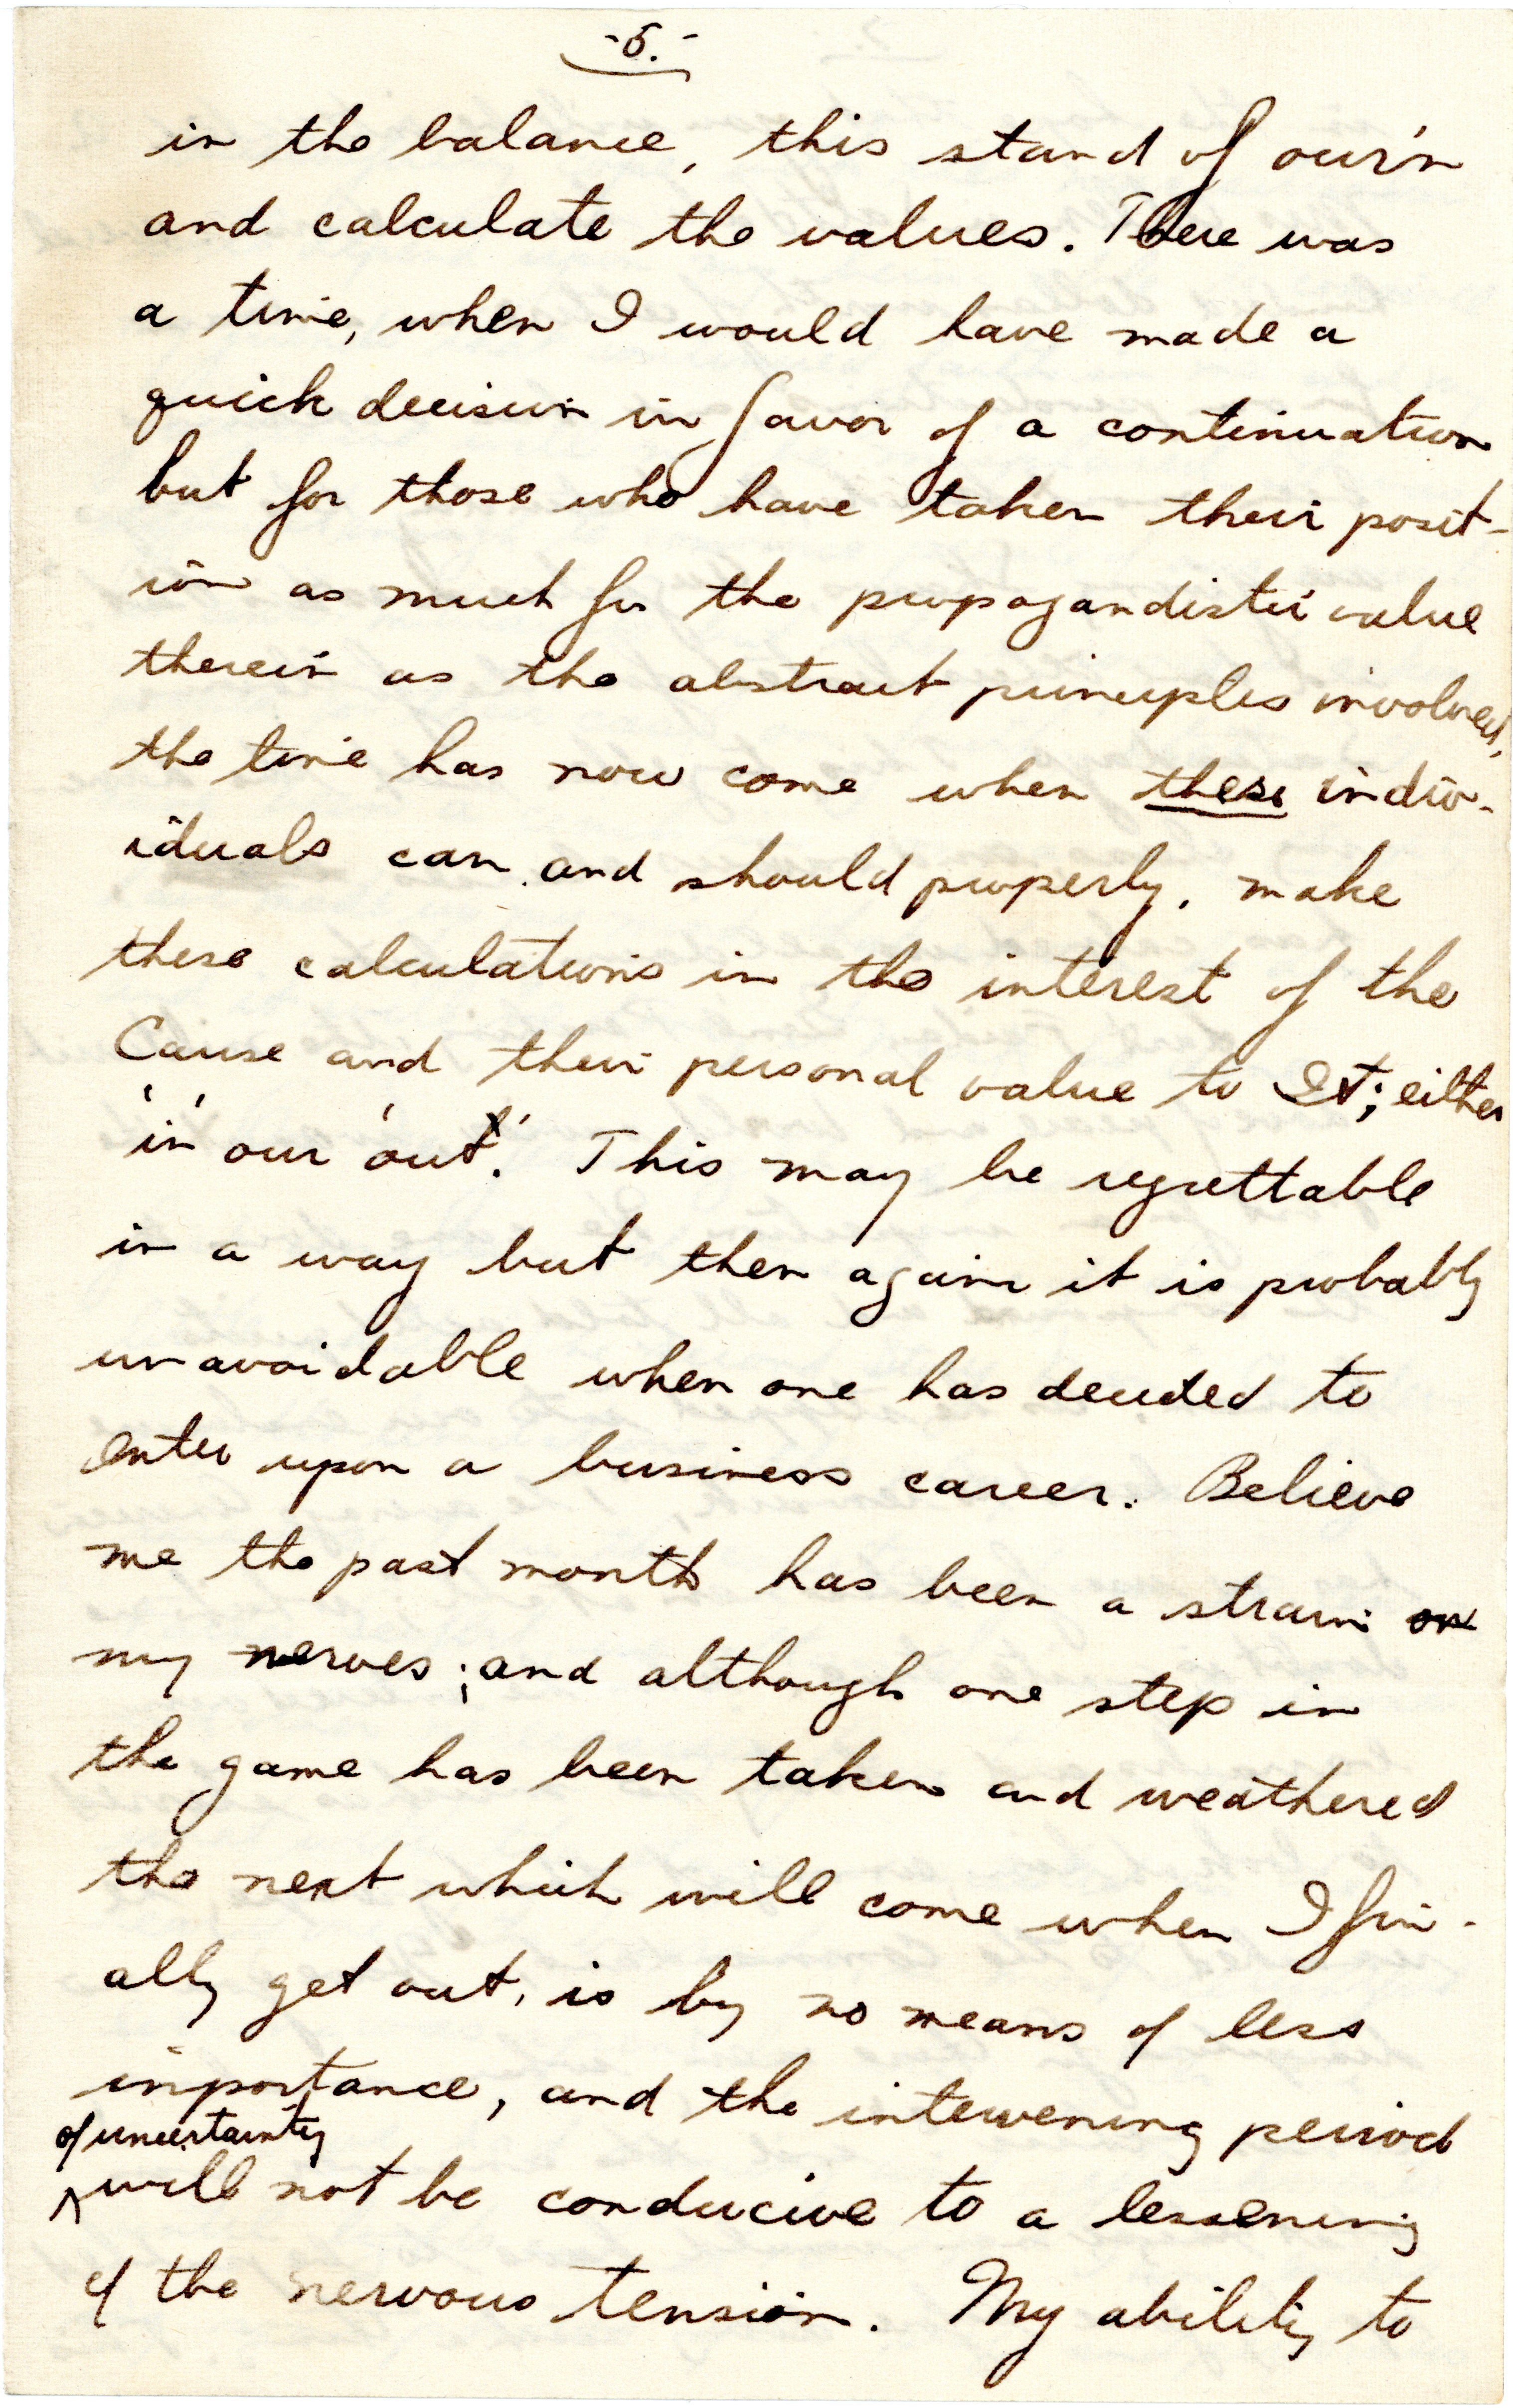 -5.-
in the balance, this stand of our'n
and calculate the values. There was
a time, when I would have made a
quick decision in favor of a continuation
but for those who have taken their posit-
ion as much for the propagandistic value
therein as the abstract principles involved,
the time has now come when these indiv-
iduals can, and should properly, make
these calculations in the interest of the
Cause and their personal value to It; either
'in' our 'out'. This may be regrettable
in a way but then again it is probably
unavoidable when one has decided to
enter upon a business career. Believe
me the past month has been a strain on
my nerves; and although one step in
the game has been taken and weathered
the next which will come when I fin-
ally get out, is by no means of less
importance, and the intervening period
of uncertainty
^ will not be conducive to a lessening
of the nervous tension. My ability to